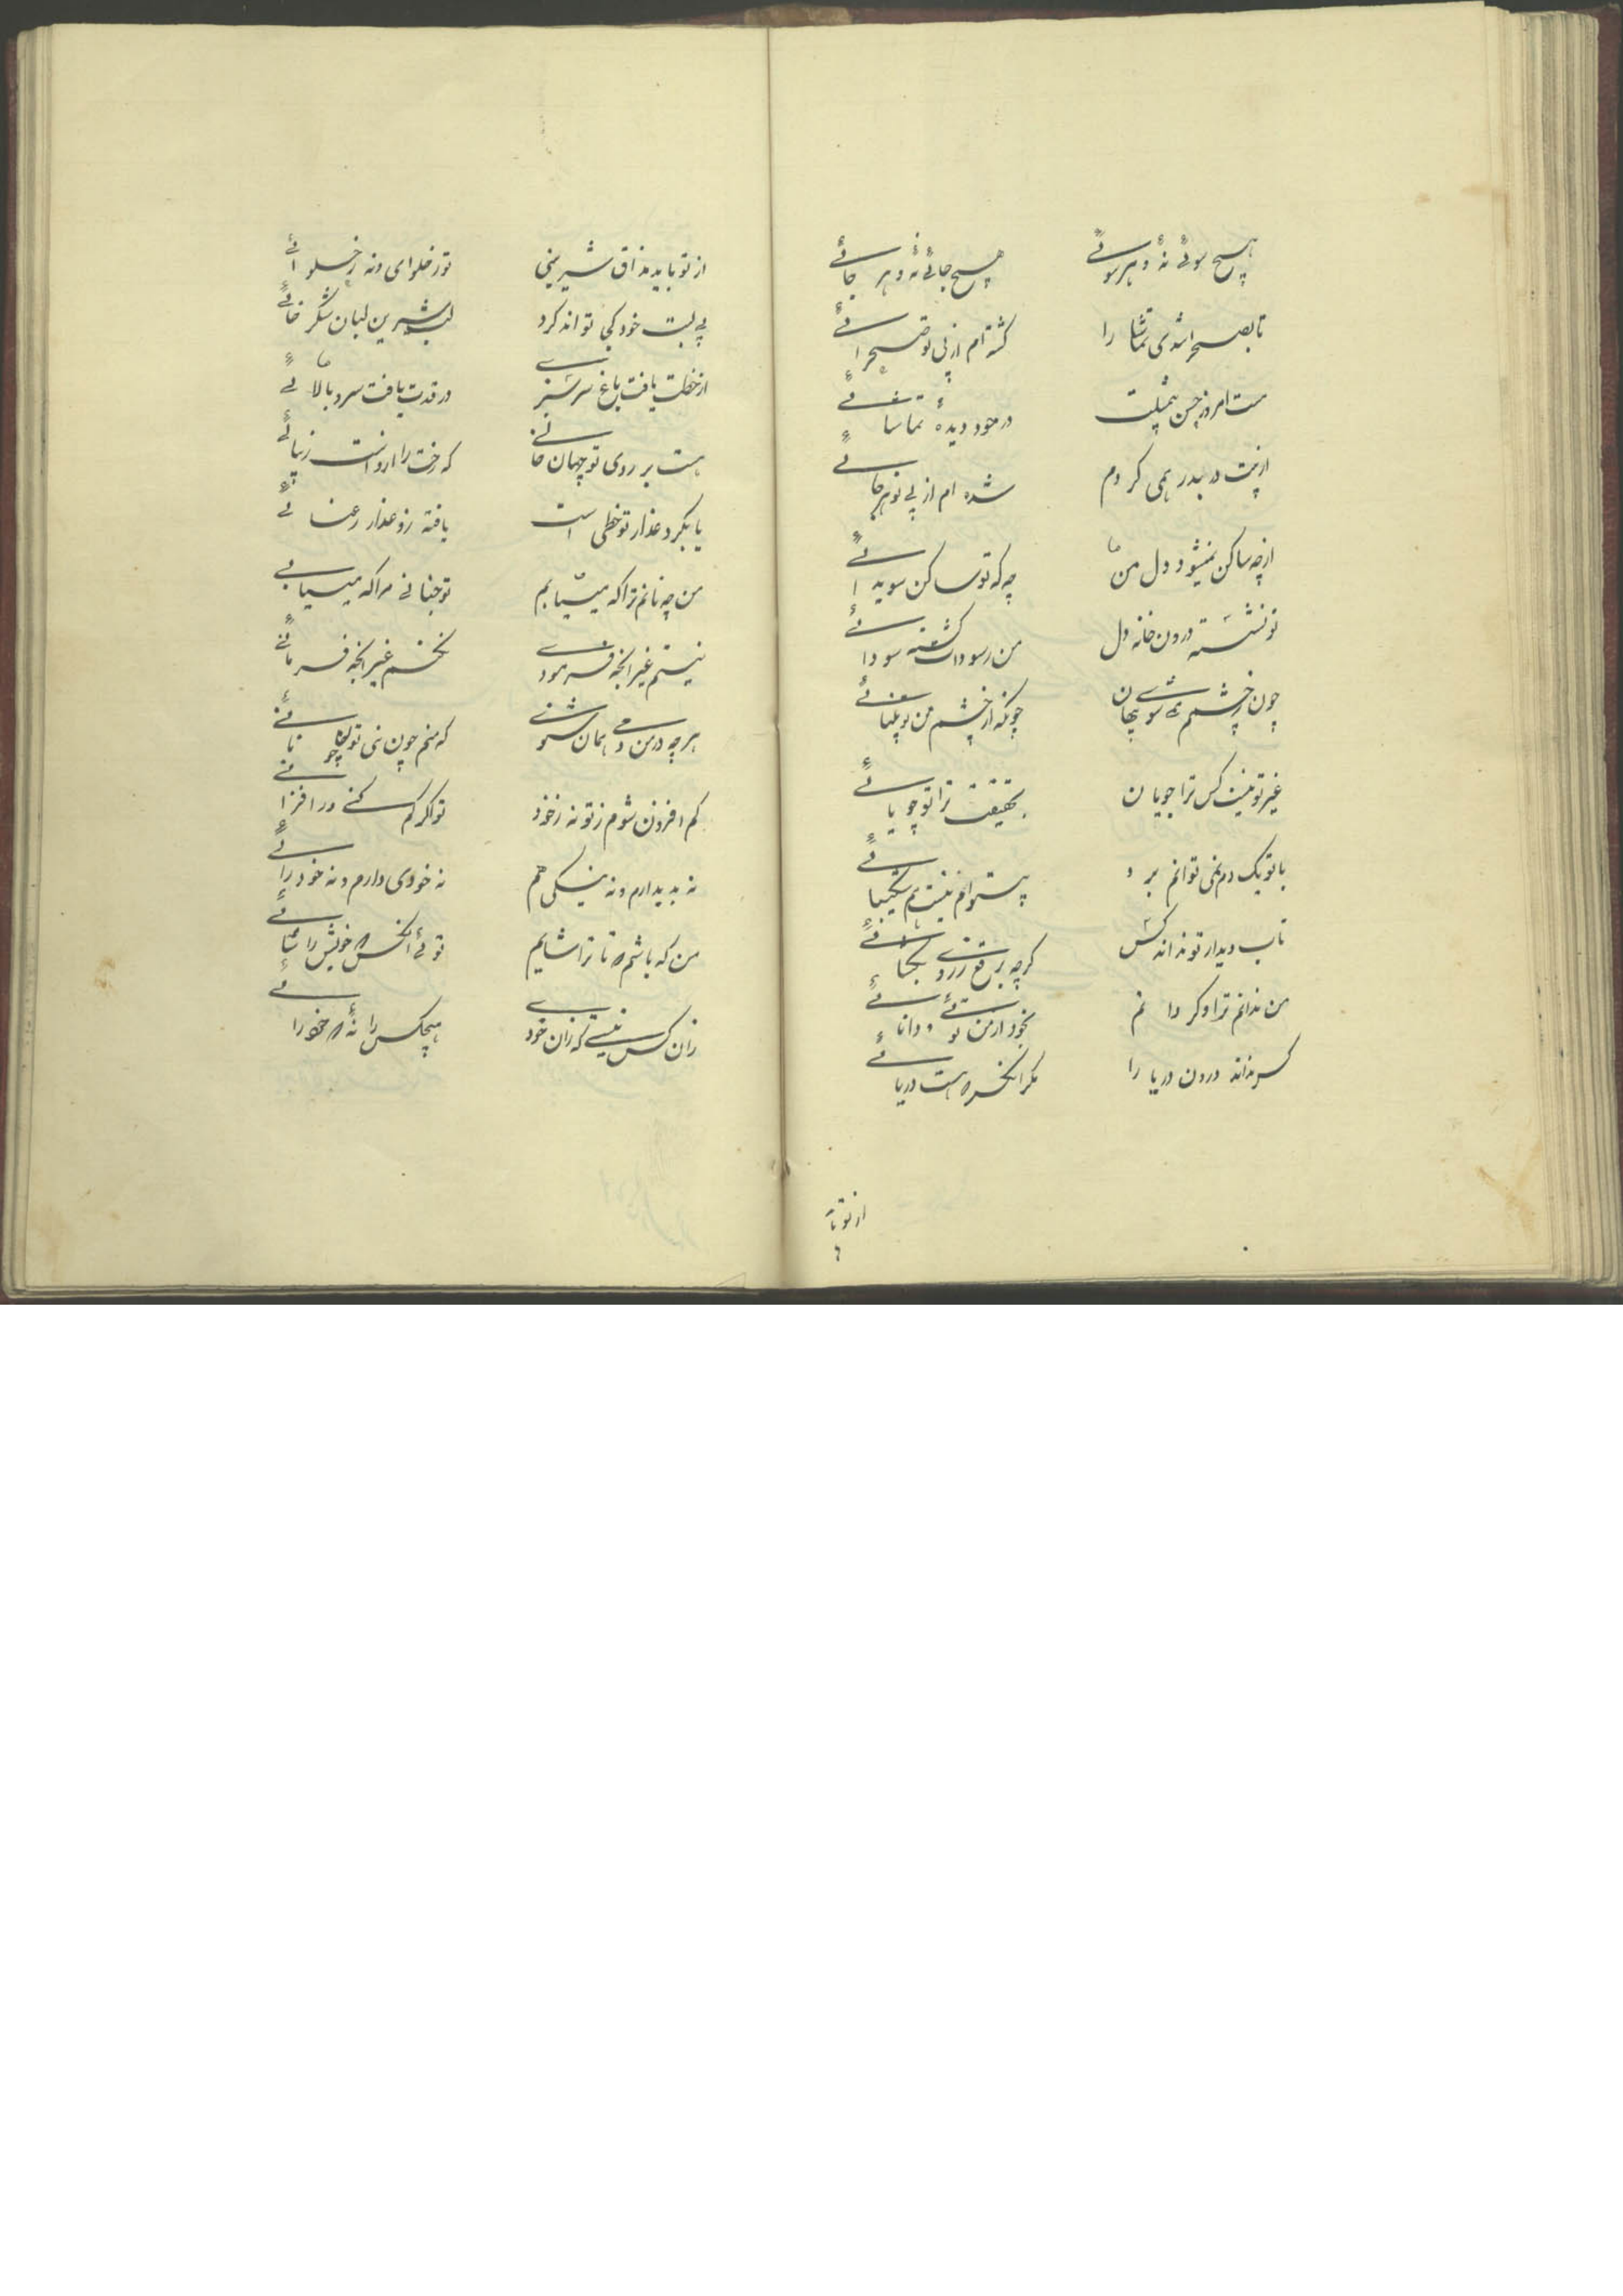 هیچ سوئی نهٔ و هر سوئی
هیچ جائی نهٔ و هر جائی
تا بصحرا شدی تماشا را
گشته ام از پی تو صحرائی
ست امروز حسن
در خود دیدهٔ تماشائی
از پیت در بدر همی کردم
شده ام از پی تو هر جائی
از چه ساکن نمیشود دل من
چه که تو ساکن سویدائی
تو نشسته درون خانه دل
من ز سودات گشته سودائی
چون ز چشمم شوی نهان
چونکه از چشم من تو پیدائی
غیر تو نیست کس ترا جویان
بحقیقت ترا تو جویائی
با تو یک دم نمی توانم برد
نیست هم شکیبائی
تاب دیدار تو نداند کس
گرچه برقع ز رو بگشائی
من ندانم ترا و گر دانم
بخود از من توئی و دانائی
کس نداند درون دریا را
مگر انکس که هست دریائی
از تو باید
از تو باید مذاق شیرینی
تو ز حلوای و نه ز حلوائی
بی لبت خود کجا تواند کرد
لب شیرین لبان شکر خائی
از خطت یافت باغ سرسبزی
و ز قدت یافت سرو بالائی
هست بر روی تو جهان
که رخت را از وست زیبائی
یا بگرد عذار تو خطی است
یافته زو عذار رعنائی
من چه نانم ترا که میشایم
تو چنانی مرا که میبائی
نیستم غیر انچه فرمودی
نکنم غیر انچه فرمائی
هر چه در من دمی همان شنوی
که منم چون نی تو چو نائی
کم و افزون شوم ز تو نه ز خود
تو اگر کم کنی ور افزائی
نه بدی دارم و نه نیکی هم
نه خودی دارم و نه خود رائی
من که باشم که تا ترا شایم
توئی انکس که خویش را شائی
زان کس نیستی که زان خود
هیچکس را نهٔ که خود را